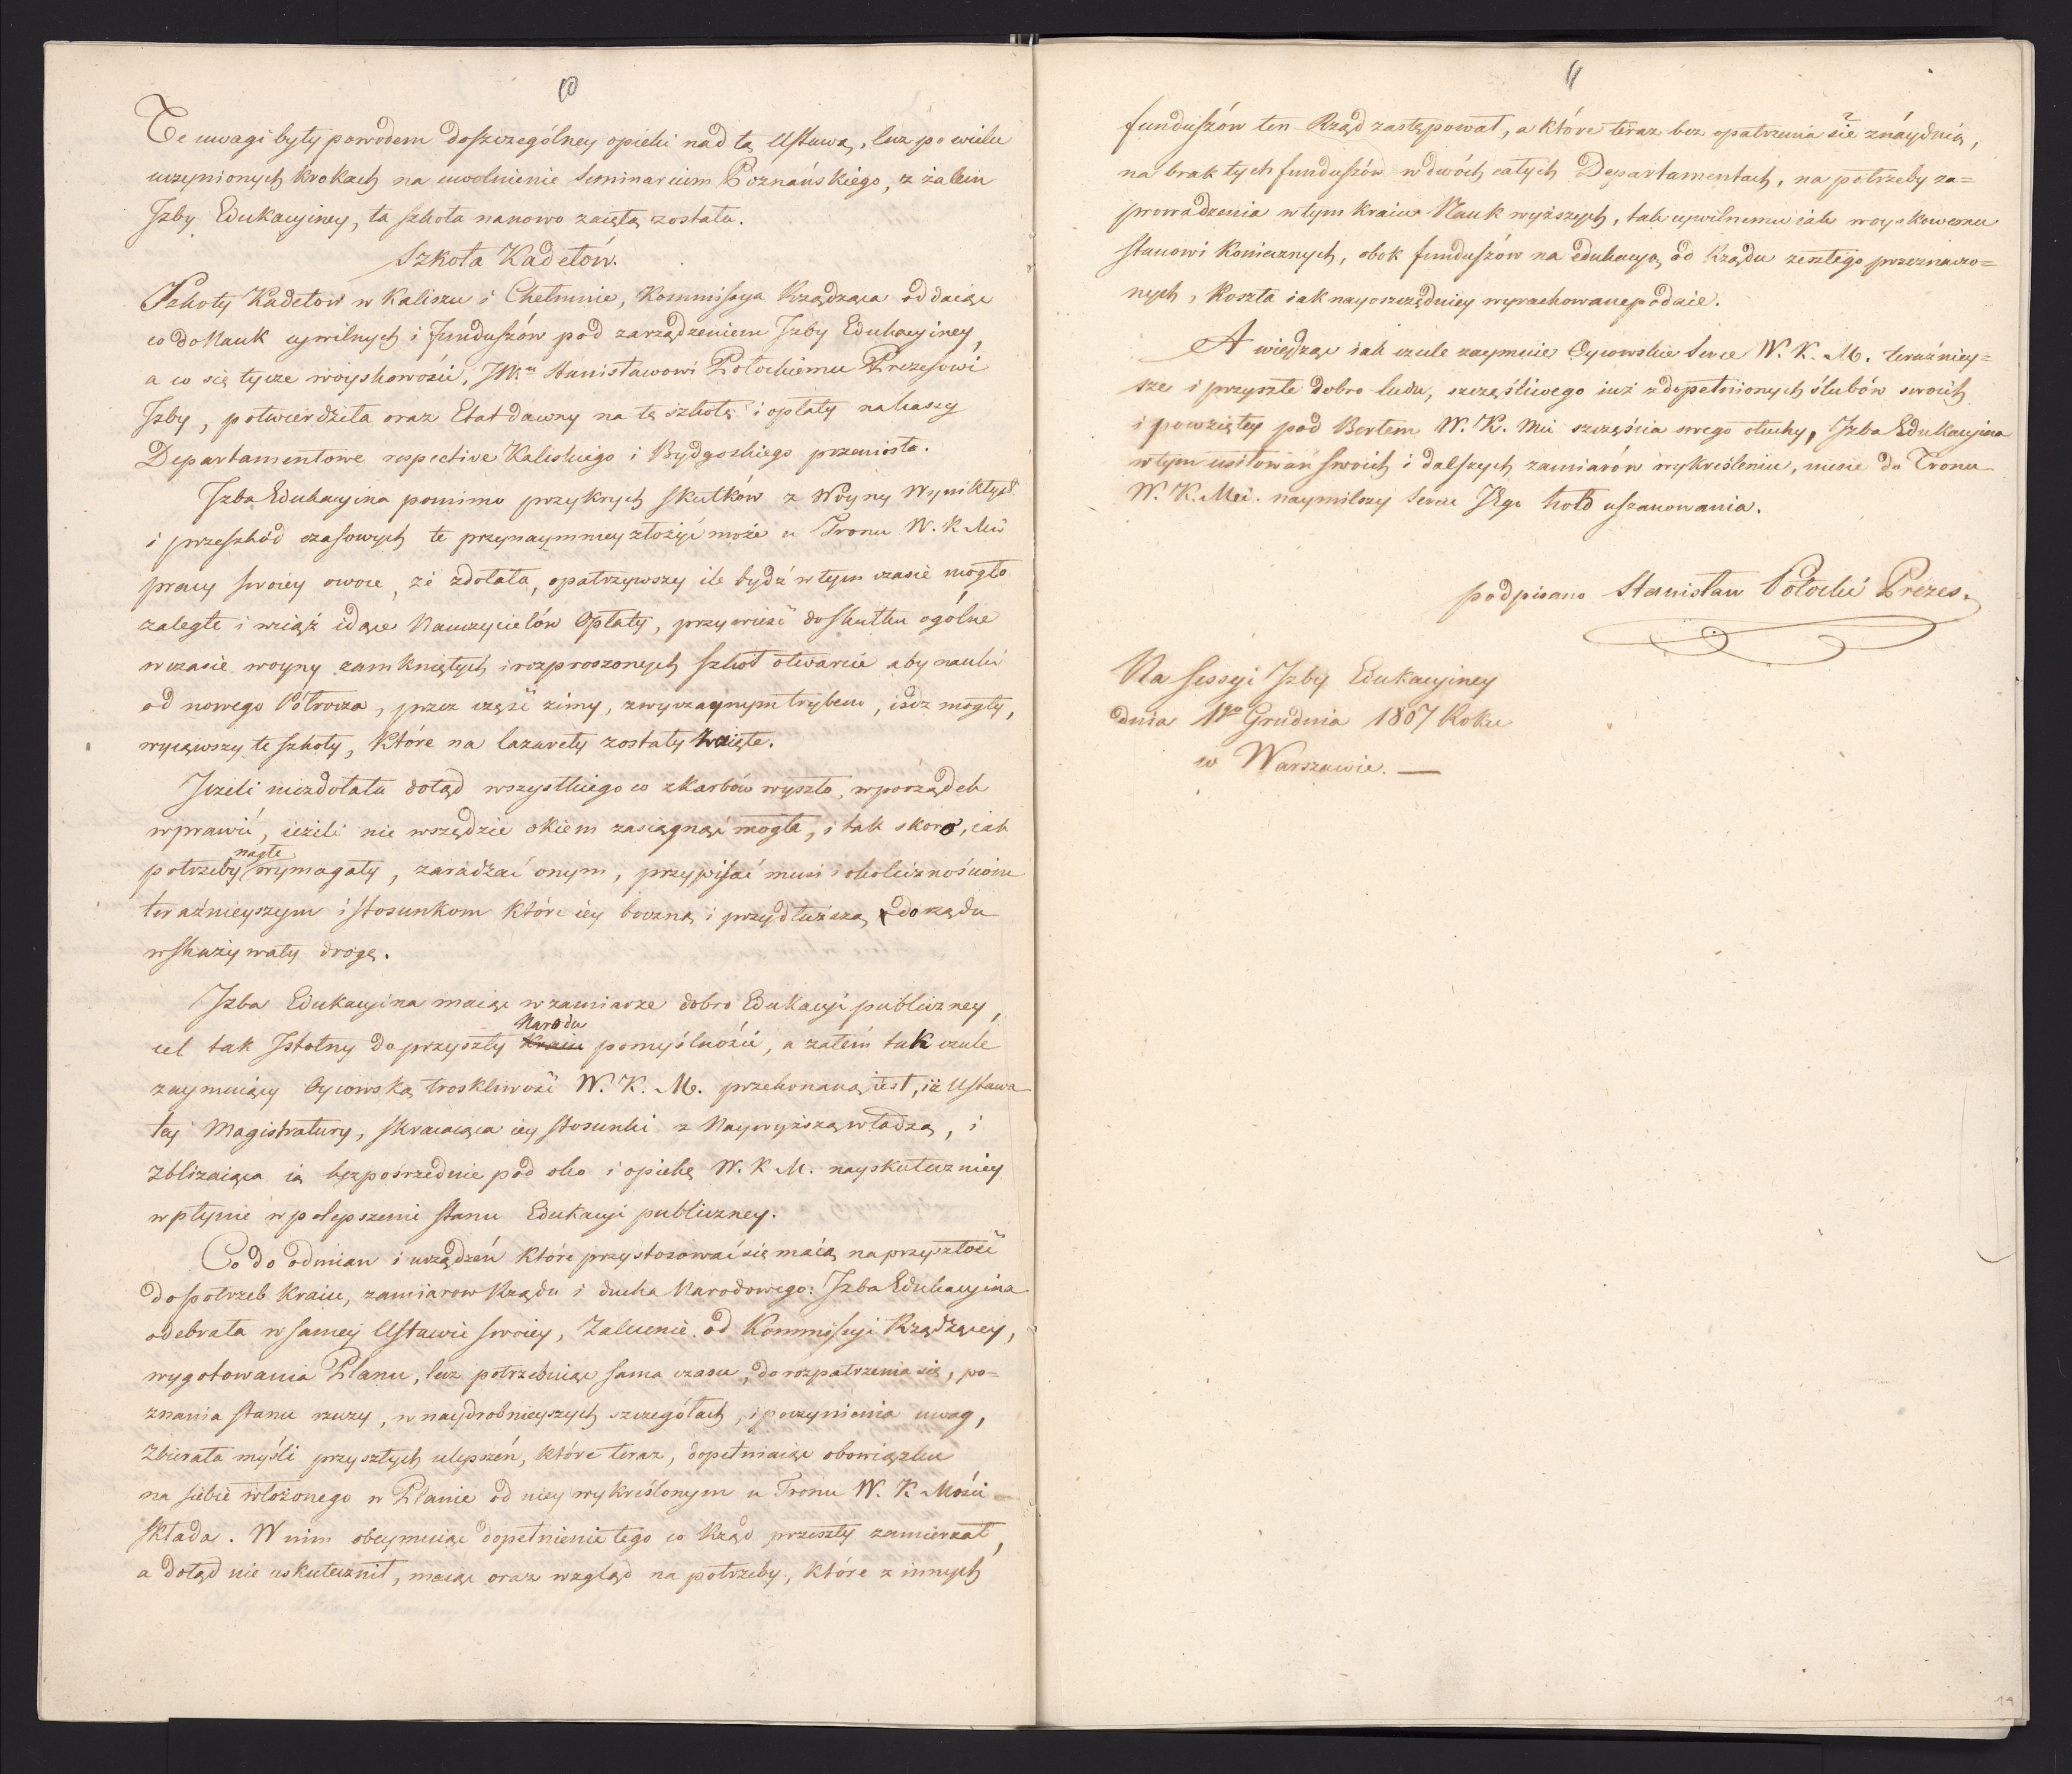 10
Te uwagi były powodem doszczególney opieki nad tą Ustawą, lecz po wielu
uczynionych krokach na uwolnienie Seminarium Poznańskiego, z żalem
Izby Edukacyiney, ta szkoła nanowo zaiętą została.
Szkoła Kadetów.
Szkoły Kadetow w Kaliszu i Chełmnie, Kommissya Rządząca oddaiąc
co do Nauk cywilnych i funduszów pod zarządzeniem Izby Edukacyiney,
a co się tycze woyskowości, JW.u Stanisławowi Potockiemu Prezesowi
Izby, potwierdziła oraz Etat dawny na tę szkołę i opłaty nakassy
Departamentowe respective Kaliskiego i Bydgoskiego przeniosła.
Izba Edukacyina pomimo przykrych skutków z Woyny Wynikłych
i przeszkód czasowych te przynaymniey złożyć może u Tronu W. K Mci
pracy swoiey owoce, że zdołała, opatrzywszy ile bydź w tym czasie mogło
zaległe i wciąż idące Nauczycielów Opłaty, przywieść doskutku ogólne
w czasie woyny zamkniętych i rozproszonych szkoł otwarcie aby nauki
od nowego Półrocza, przez część zimy, zwyczaynym trybem, iśdź mogły,
wyiąwszy te szkoły, które na lazarety zostały wzięte.
Jeżeli niezdołała dotąd wszystkiego co z karbów wyszło, w porządek
wprawić, ieżeli nie wszędzie okiem zasiągnąć mogła, i tak skoro, iak
potrzeby nagłe wymagały, zaradzać onym, przypisać musi okolicznościom
teraźnieyszym i stosunkom które iey boczną i przydłuższą do rządu
wskazywały drogę.
Izba Edukacyina maiąc w zamiarze dobro Edukacyi publiczney,
cel tak Istotny do przyszły Kraiu Narodu pomyślności, a zatém tak czule
zaymuiący Oycowską troskliwość W. K. M. przekonaną iest, iż Ustawa
tey Magistratury, skracaiąca iey stosunki z Naywyższą władzą, i
zbliżaiąca ią bezpośrzednie pod oko i opiekę W. K M. nayskuteczniey
wpłynie w polepszenie stanu Edukacyi publiczney.
Co do odmian i urządzeń które przystosować się maią na przyszłość
do potrzeb Kraiu, zamiarow Rządu i ducha Narodowego: Izba Edukacyina
odebrała w samey Ustawie swoiey, Zalecenie od Kommissyi Rządzącey,
wygotowania Planu, lecz potrzebuiąc sama czasu, do rozpatrzenia się, po=
znania stanu rzeczy, w naydrobnieyszych szczegółach, i poczynienia uwag,
Zbierała myśli przyszłych ulepszeń, które teraz, dopełniaiąc obowiązku
na siebie włożonego w Planie od niey wykreślonym u Tronu W. K Mości
składa. W nim obeymuiąc dopełnienie tego co Rząd przeszły zamierzał,
a dotąd nie uskutecznił, maiąc oraz wzgląd na potrzeby, które z innych
11
funduszów ten Rząd zastępował, a które teraz bez opatrzenia się znaydują,
na brak tych funduszów w dwóch całych Departamentach, na potrzeby za=
prowadzenia w tym kraiu Nauk wyższych, tak cywilnemu iak woyskowemu
stanowi koniecznych, obok funduszów na edukacyą od Rządu zeszłego przeznaczo=
nych, koszta iak nayoszczędniey wyrachowane podaie.
A wiedząc iak czule zaymuie Oycowskie Serce W. K. M. teraźniey=
sze i przyszłe dobro ludu, szczęśliwego iuż z dopełnionych ślubów swoich
i powziętey pod Berłem W. K. Mci szczęścia swego otuchy, Izba Edukacyina
w tym usiłowań swoich i dalszych zamiarów wykreśleniu, niesie do Tronu
W. K. Mci. naymilszy Sercu Jego hołd uszanowania.
podpisano Stanisław Potocki Prezes.
Na Sessyi Izby Edukacyiney
dnia 1go Grudnia 1807 Roku
w Warszawie. —